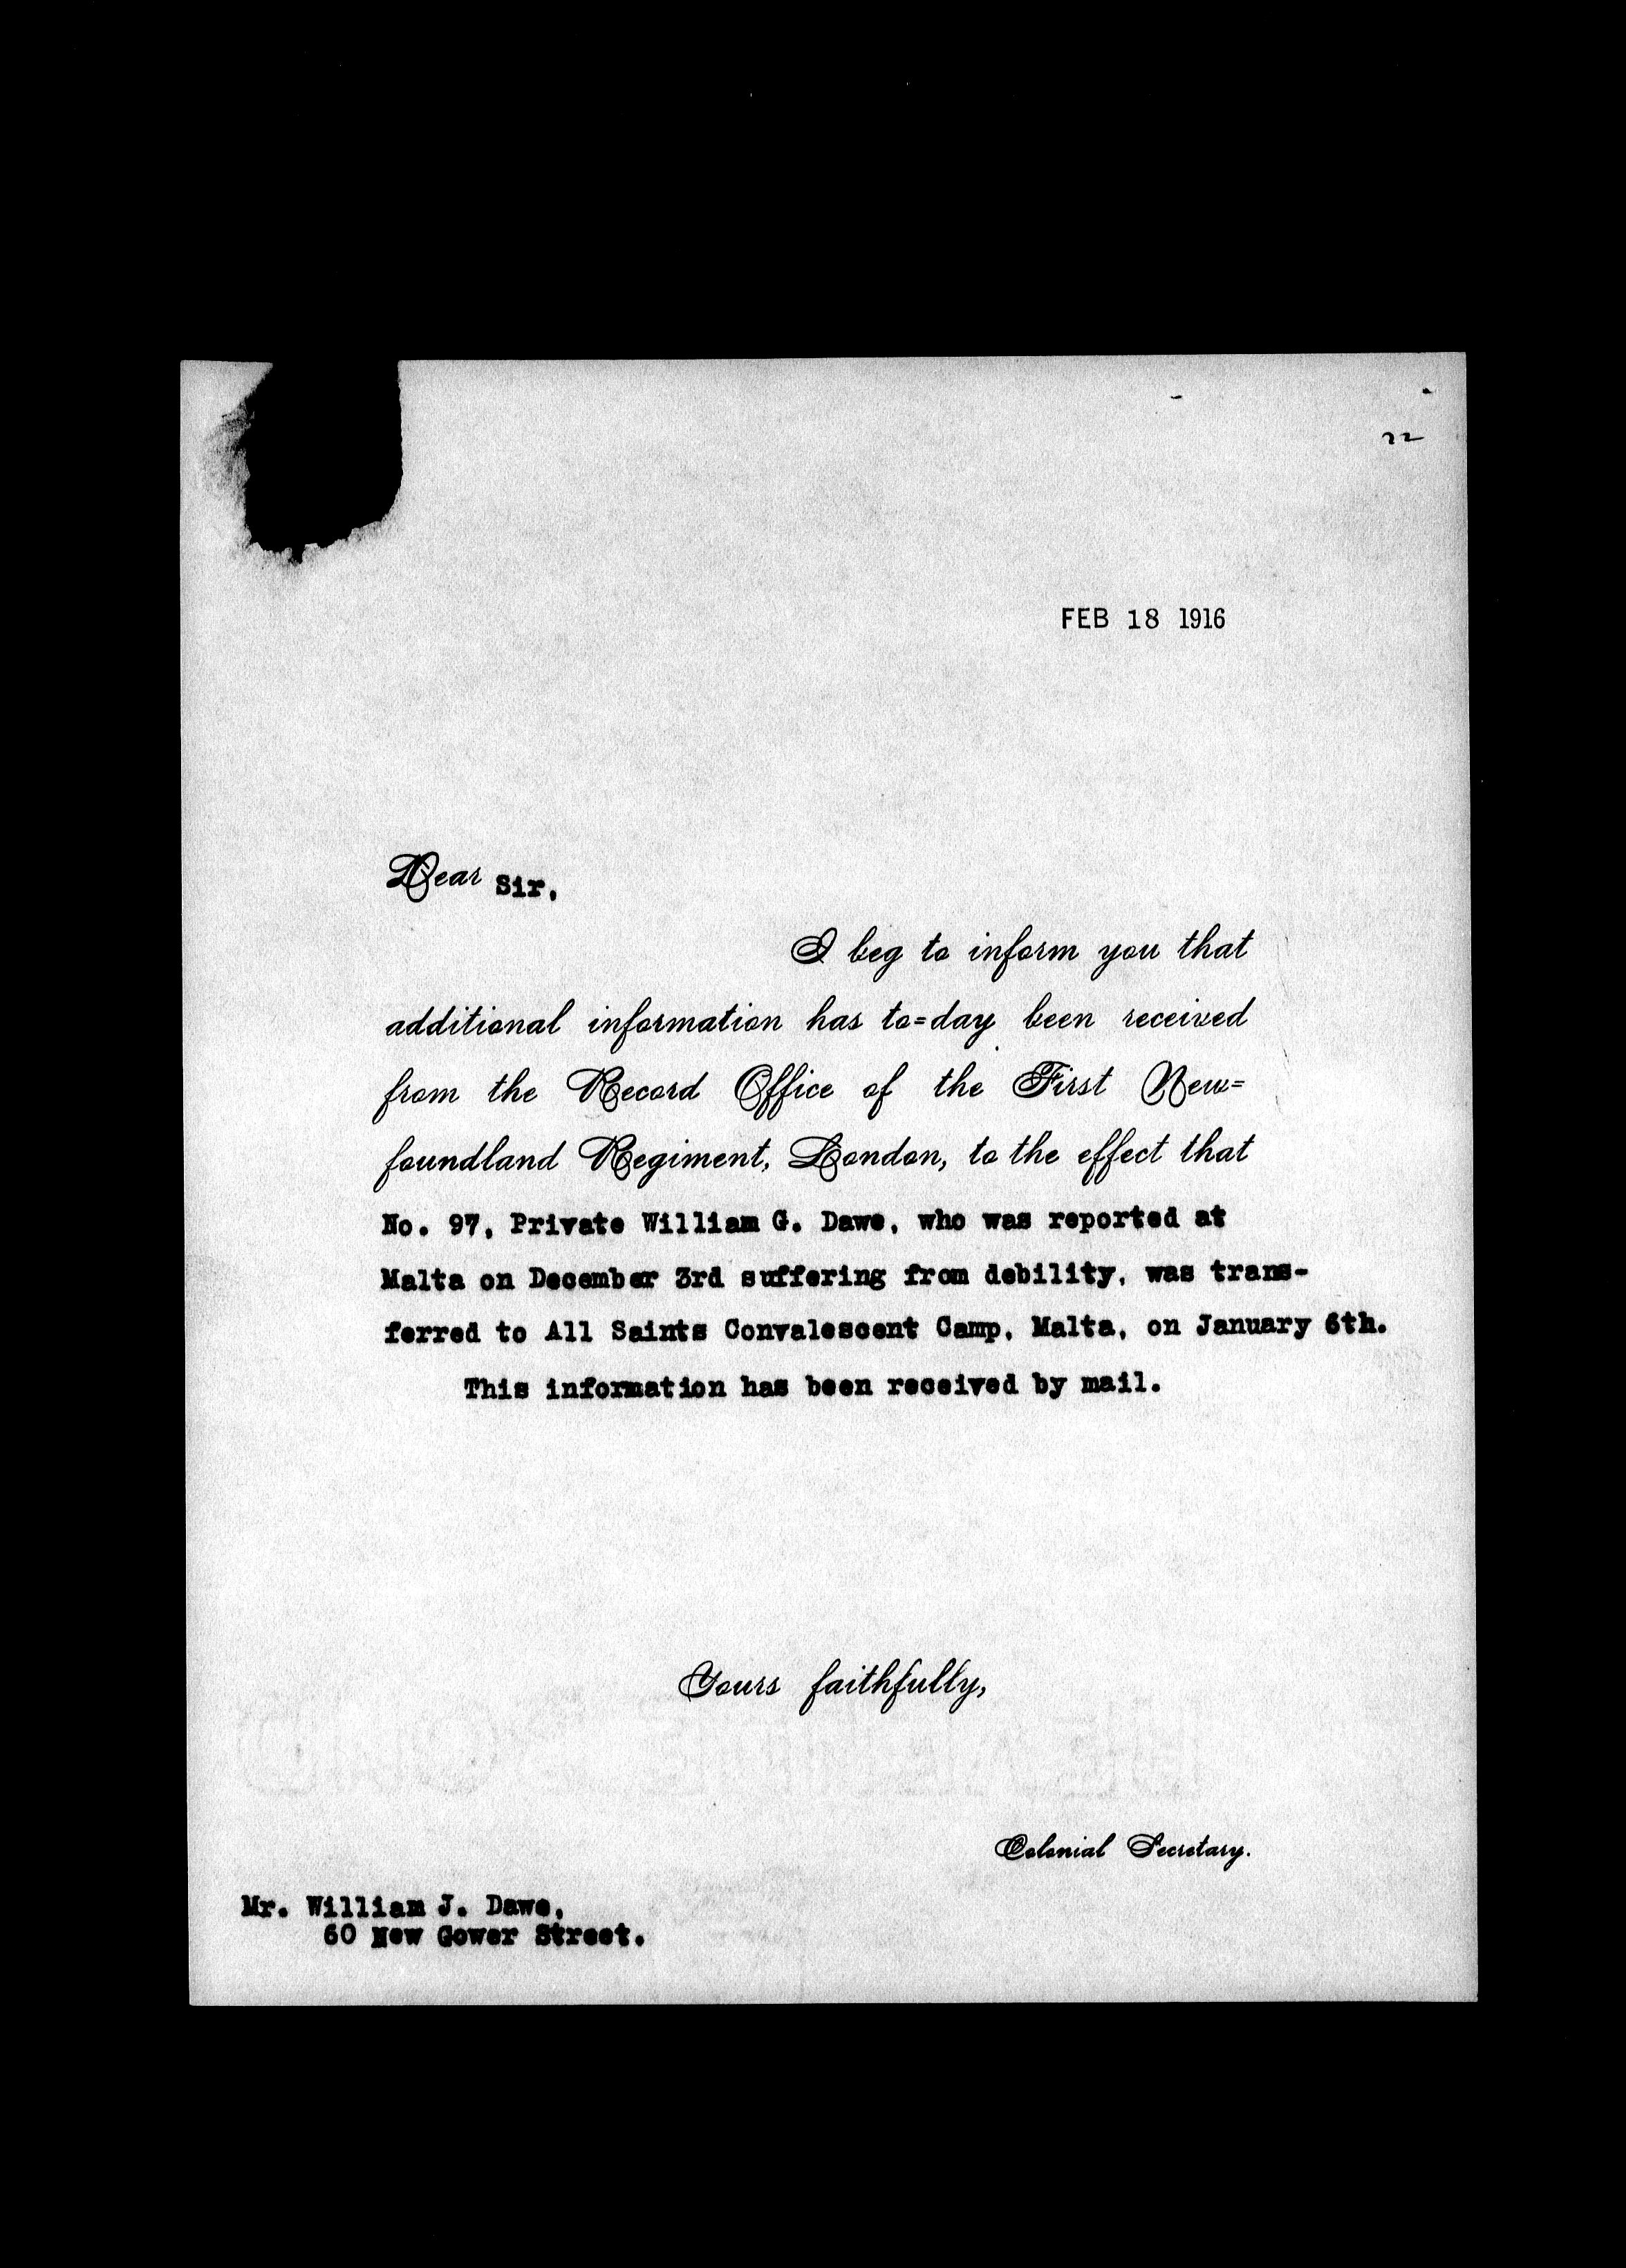 22
FEB 18 1916
Dear Sir,
I beg to inform you that
additional information has to=day been received
from the Record Office of the First New=
foundland Regiment, London, to the effect that
No. 97, Private William G. Dawe, who was reported at
Malta on December 3rd suffering from debility, was trans-
ferred to All Saints Convalescent Camp, Malta, on January 6th.
This information has been received by mail.
Yours faithfully,
Colonial Secretary.
Mr. William J. Dawe,
60 New Gower Street.